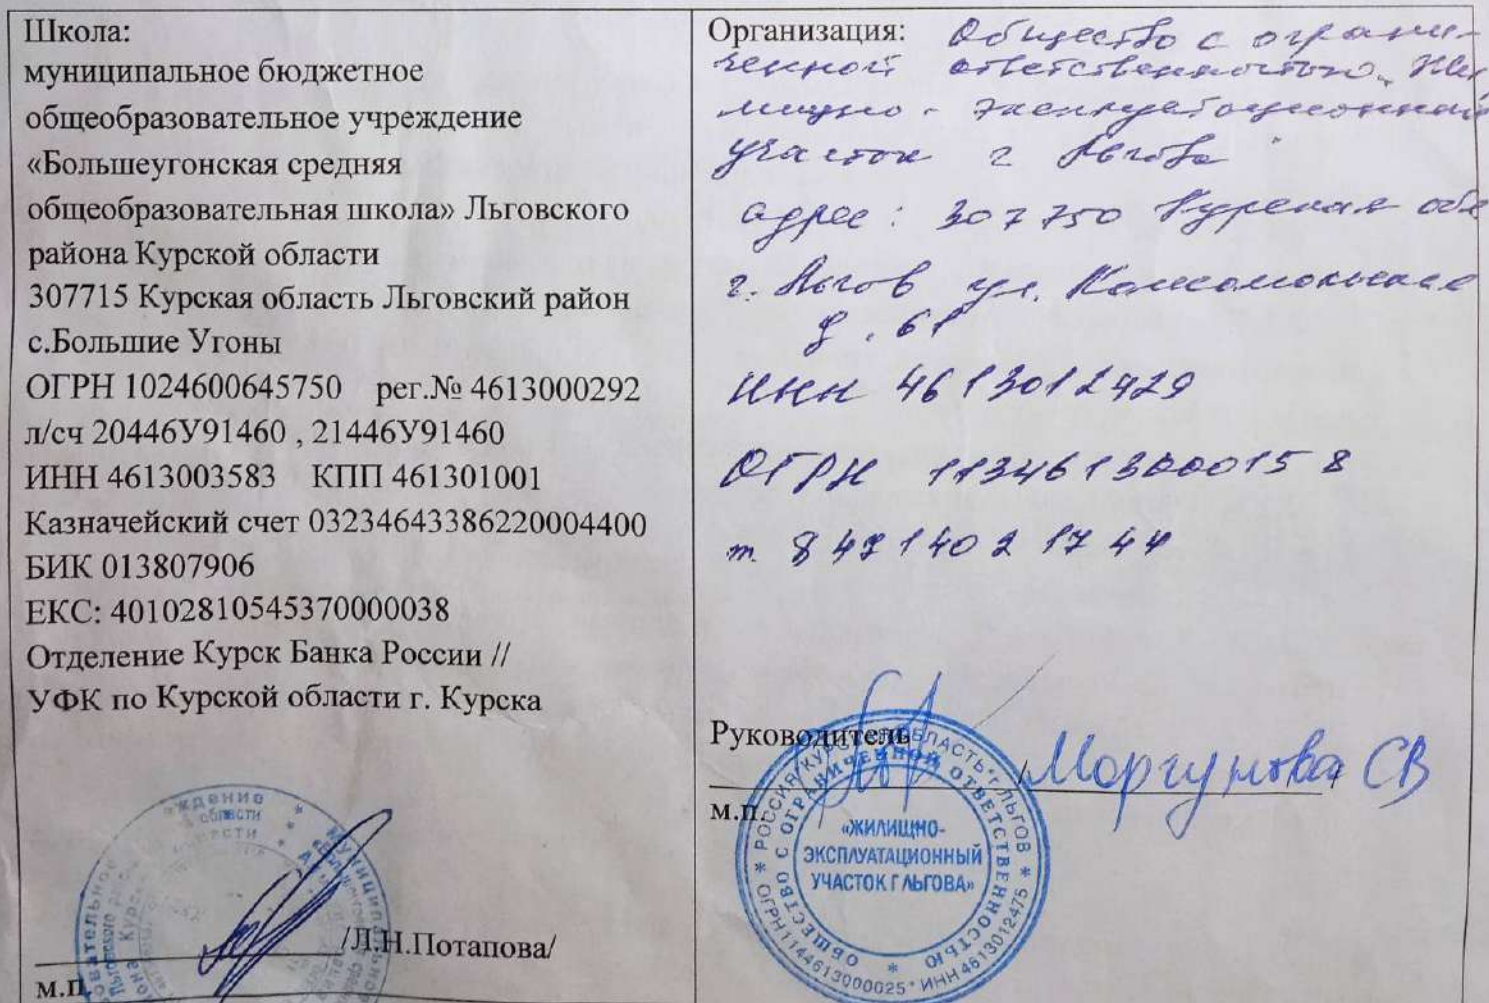 Школа:
муниципальное бюджетное
общеобразовательное учреждение
«Большеугонская средняя
общеобразовательная школа» Льговского
района Курской области
307715 Курская область Льговский район
с.Большие Угоны
ОГРН 1024600645750 рег.№ 4613000292
л/сч 20446У91460 , 21446У91460
ИНН 4613003583 КПП 461301001
Казначейский счет 03234643386220004400
БИК 013807906
ЕКС: 40102810545370000038
Отделение Курск Банка России //
УФК по Курской области г. Курска
/Л.Н.Потапова/
м.п.
Организация: Общество с ограни-
ченной ответственностью
эксплуатационный
участок г Льгова"
адрес: 307750 Курская обл
г. Льгов ул. Комсомольская
д. 61
ИНН
ОГРН 1134613000158
т. 8 47140 2 17 44
Руководитель
Моргунова СВ
м.п.
* РОССИЯ КУРСКАЯ ОБЛАСТЬ г. ЛЬГОВ * ОГРН 1144613000025 * ИНН 4613012475
ОБЩЕСТВО С ОГРАНИЧЕННОЙ ОТВЕТСТВЕННОСТЬЮ *
«ЖИЛИЩНО-
ЭКСПЛУАТАЦИОННЫЙ
УЧАСТОК Г ЛЬГОВА»